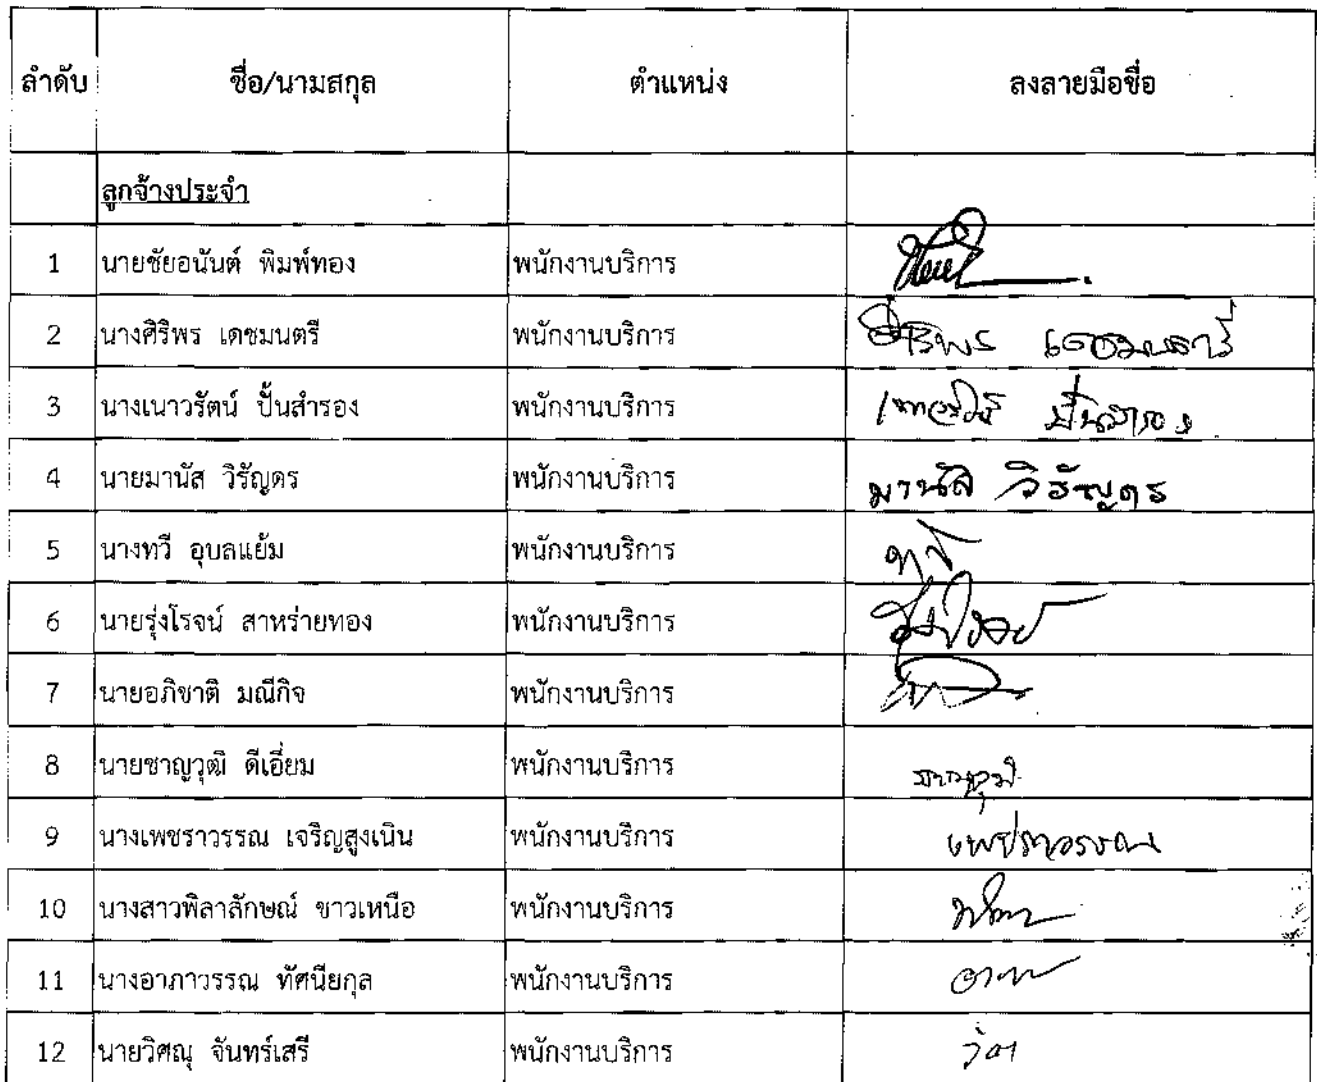 ลำดับ ชื่อ/นามสกุล ตำแหน่ง ลงลายมือชื่อ
ลูกจ้างประจำ
1 นายชัยอนันต์ พิมพ์ทอง พนักงานบริการ
2 นางศิริพร เดชมนตรี พนักงานบริการ ศิริพร เดชมนตรี
3 นางเนาวรัตน์ ปั้นสำรอง พนักงานบริการ เนาวรัตน์ ปั้นสำรอง
4 นายมานัส วิรัญดร พนักงานบริการ มานัส วิรัญดร
5 นางทวี อุบลแย้ม พนักงานบริการ ทวี
6 นายรุ่งโรจน์ สาหร่ายทอง พนักงานบริการ
7 นายอภิชาติ มณีกิจ พนักงานบริการ
8 นายชาญวุฒิ ดีเอี่ยม พนักงานบริการ ชาญวุฒิ
9 นางเพชราวรรณ เจริญสูงเนิน พนักงานบริการ เพชราวรรณ
10 นางสาวพิลาลักษณ์ ขาวเหนือ พนักงานบริการ
11 นางอาภาวรรณ ทัศนียกุล พนักงานบริการ
12 นายวิศณุ จันทร์เสรี พนักงานบริการ